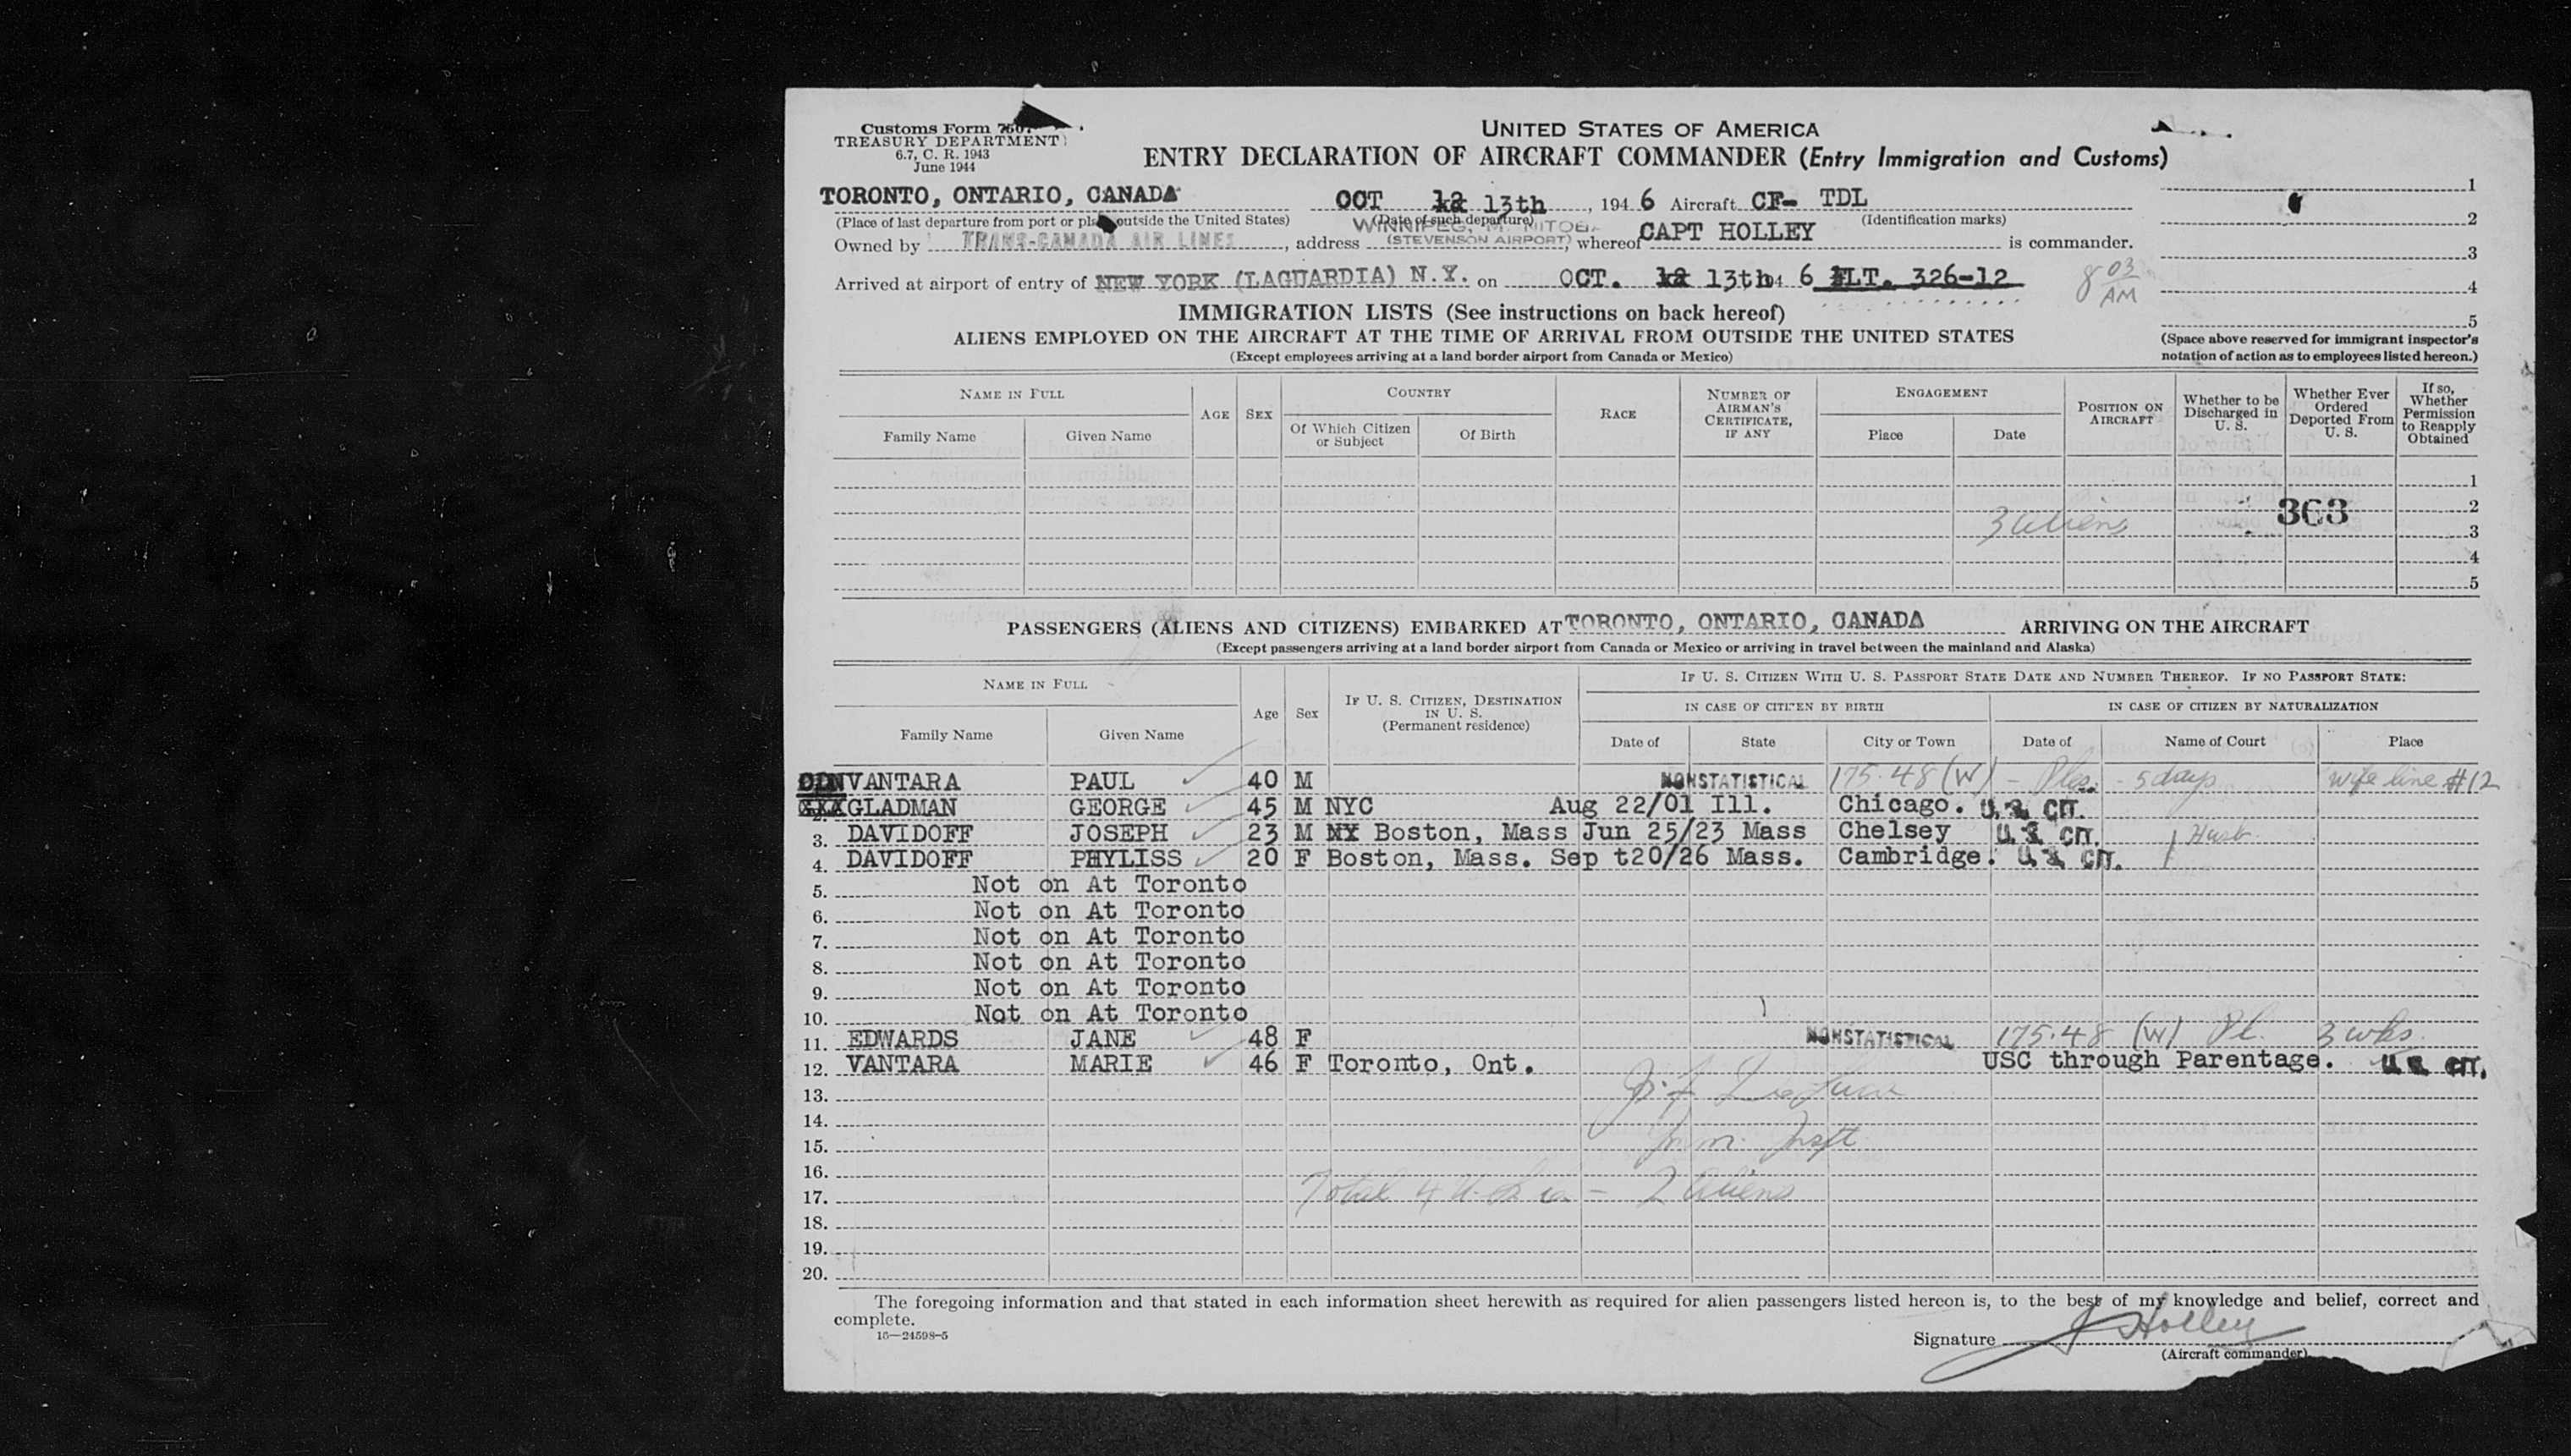 Customs Form 7507
TREASURY DEPARTMENT
6.7, C. R. 1943
June 1944
UNITED STATES OF AMERICA
ENTRY DECLARATION OF AIRCRAFT COMMANDER (Entry Immigration and Customs)
TORONTO, ONTARIO, CANADA OCT 12 13th, 194 6 Aircraft CF- TDL
(Place of last departure from port or place outside the United States) (Date of such departure) (Identification marks)
WINNIPEG, MANITOBA
Owned by TRANS-CANADA AIR LINES, address (STEVENSON AIRPORT), whereof CAPT HOLLEY is commander.
Arrived at airport of entry of NEW YORK (LAGUARDIA) N.Y. on OCT. 12 13th 194 6 FLT. 326-12
8 03 AM
1
2
3
4
5
(Space above reserved for immigrant inspector's
notation of action as to employees listed hereon.)
IMMIGRATION LISTS (See instructions on back hereof)
ALIENS EMPLOYED ON THE AIRCRAFT AT THE TIME OF ARRIVAL FROM OUTSIDE THE UNITED STATES
(Except employees arriving at a land border airport from Canada or Mexico)
NAME IN FULL
Family Name Given Name
AGE SEX
COUNTRY
Of Which Citizen or Subject Of Birth
RACE
NUMBER OF AIRMAN'S CERTIFICATE, IF ANY
ENGAGEMENT
Place Date
POSITION ON AIRCRAFT
Whether to be Discharged in U. S.
Whether Ever Ordered Deported From U. S.
If so, Whether Permission to Reapply Obtained
1
2
363
3 aliens 3
4
5
PASSENGERS (ALIENS AND CITIZENS) EMBARKED AT TORONTO, ONTARIO, CANADA ARRIVING ON THE AIRCRAFT
(Except passengers arriving at a land border airport from Canada or Mexico or arriving in travel between the mainland and Alaska)
NAME IN FULL
Family Name Given Name
Age Sex
IF U. S. CITIZEN, DESTINATION IN U. S. (Permanent residence)
IF U. S. CITIZEN WITH U. S. PASSPORT STATE DATE AND NUMBER THEREOF. IF NO PASSPORT STATE:
IN CASE OF CITIZEN BY BIRTH IN CASE OF CITIZEN BY NATURALIZATION
Date of State City or Town Date of Name of Court Place
VANTARA PAUL 40 M NONSTATISTICAL 175.48 (W) - Pls. - 5 days wife line #12
GLADMAN GEORGE 45 M NYC Aug 22/01 Ill. Chicago. U.S. CIT.
3. DAVIDOFF JOSEPH 23 M NY Boston, Mass Jun 25/23 Mass Chelsey U.S. CIT. Husb.
4. DAVIDOFF PHYLISS 20 F Boston, Mass. Sep t20/26 Mass. Cambridge. U.S. CIT.
5. Not on At Toronto
6. Not on At Toronto
7. Not on At Toronto
8. Not on At Toronto
9. Not on At Toronto
10. Not on At Toronto
11. EDWARDS JANE 48 F NONSTATISTICAL 175.48 (W) Pl. 3 wks.
12. VANTARA MARIE 46 F Toronto, Ont. USC through Parentage. U.S. CIT.
13.
14.
15.
16.
17. Total 4 - 2 aliens
18.
19.
20.
The foregoing information and that stated in each information sheet herewith as required for alien passengers listed hereon is, to the best of my knowledge and belief, correct and
complete.
16—24598-5
Signature J Holley
(Aircraft commander)